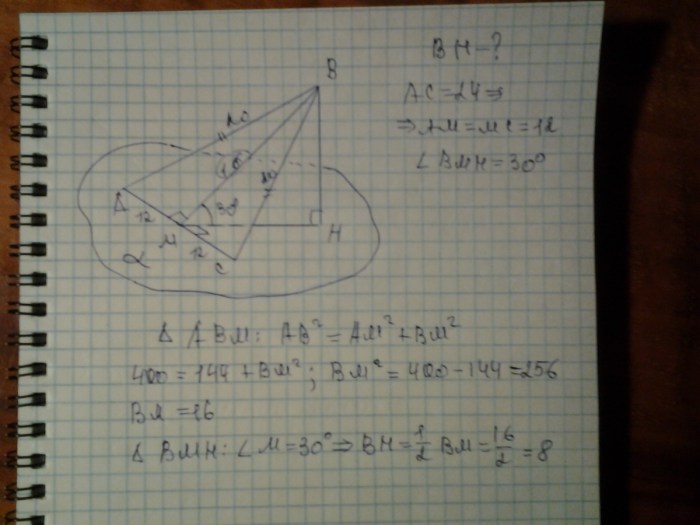 BH-?
AC=24⇒
⇒AM=MC=12
∠BMH=30°
B
20
16
20
30°
A
12
M
12
C
H
α
Δ ABM: AB²=AM²+BM²
400=144+BM²; BM²=400-144=256
BM=16
Δ BMH: ∠M=30°⇒BH=1/2 BM=16/2=8